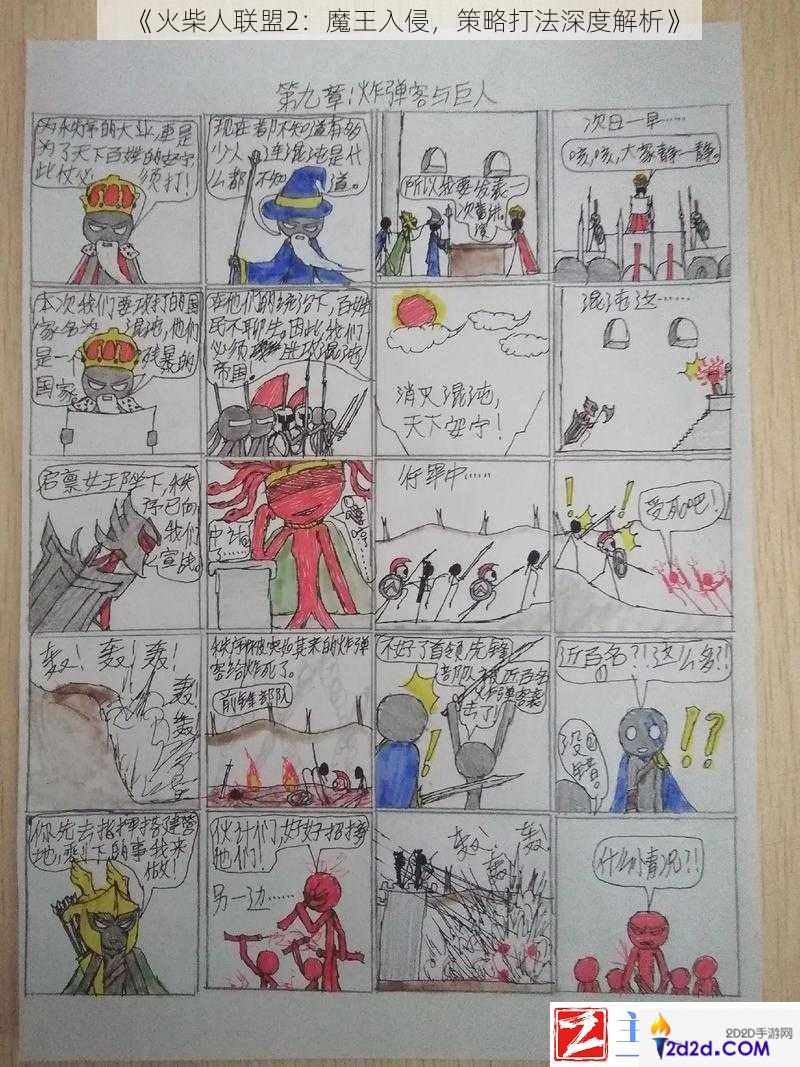 《火柴人联盟2：魔王入侵，策略打法深度解析》
第九章:炸弹客与巨人
为了天下百姓的
此仗必须打！
现在都不知道有多
少人连混沌是什
么都不知道。
所以我要发表一
次
次日一早……
咳,咳,大家静一静。
本次我们要攻打的国
家名为混沌,他们
是一
残暴的
国家。
在他们的统治下,百姓
民不聊生。因此,我们
必须
进攻混沌
帝国。
消灭混沌,
天下安宁！
混沌这……
启禀女王陛下,秩
序已向
我们
宣战。
哼
行军中……
受死吧！
轰！轰！轰！
轰！
轰
轰
秩序被突如其来的炸弹
客给炸死了。
前锋部队
不好了首领,先锋
部队被近百名
炸弹客袭
击了！
近百名?!这么多?!
没
错。
你先去指挥搭建营
地,剩下的事我来
做！
伙计们,好好招待
他们！
另一边……
轰！轰！
轰！
什么情况?!
主
2D2D手游网
2d2d.com